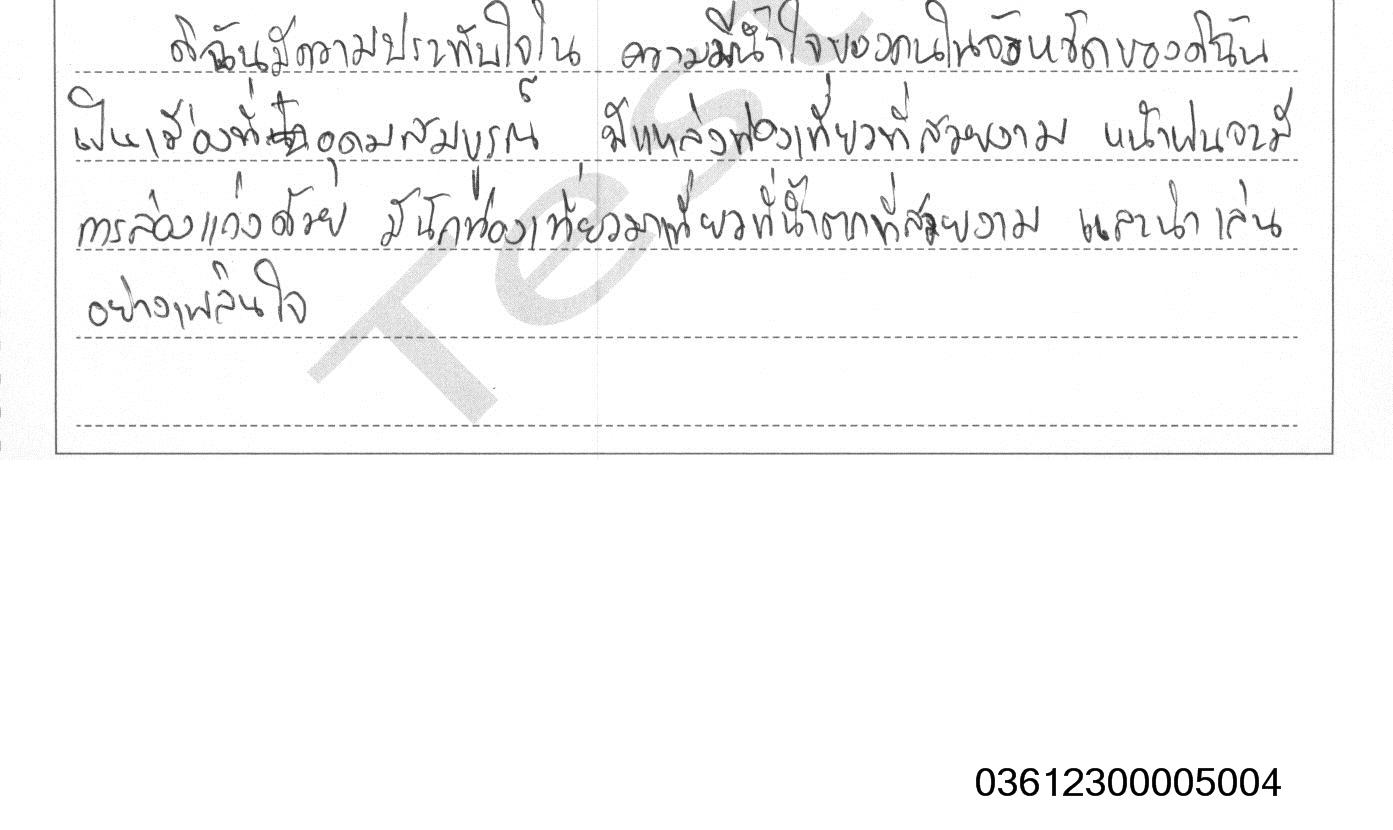 ดิฉันมีความประทับใจใน ความมีน้ำใจของคนในจังหวัดของดิฉัน
เป็นเมืองที่อุดมสมบูรณ์ มีแหล่งท่องเที่ยวที่สวยงาม หน้าฝนจะมี
การล่องแก่งด้วย มีนักท่องเที่ยวมาเที่ยวที่น้ำตกที่สวยงาม และน่าเล่น
อย่างเพลินใจ
Test
03612300005004